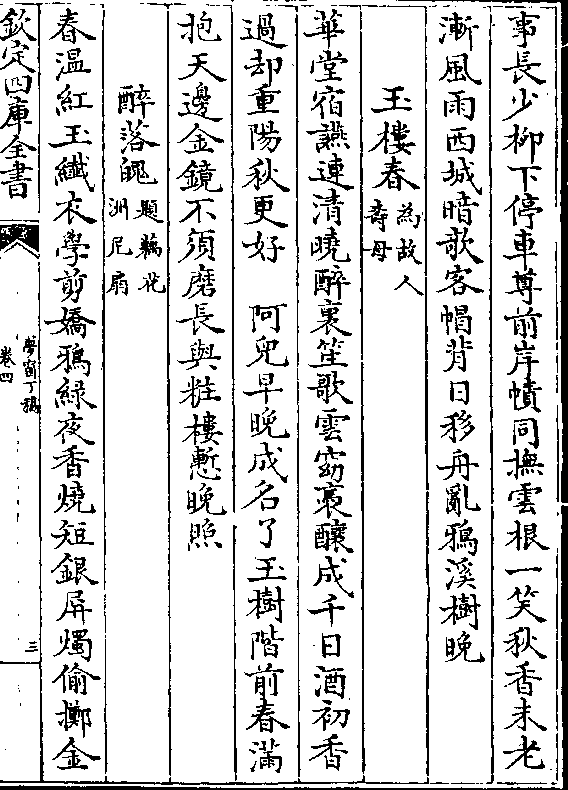 事長少柳下停車尊前岸幘同撫雲根一笑秋香未老
漸風雨西城暗欹客帽背日移舟亂鴉溪樹晚
玉樓春為故人壽母
華堂宿讌連清曉醉裏笙歌雲窈裊釀成千日酒初香
過却重陽秋更好　阿兒早晚成名了玉樹階前春滿
抱天邊金鏡不須磨長與粧樓懸晚照
醉落魄題藕花洲尼扇
春温紅玉纎衣學剪嬌鴉緑夜香燒短銀屏燭偷擲金
欽定四庫全書
夢窗丁稿
卷四
三